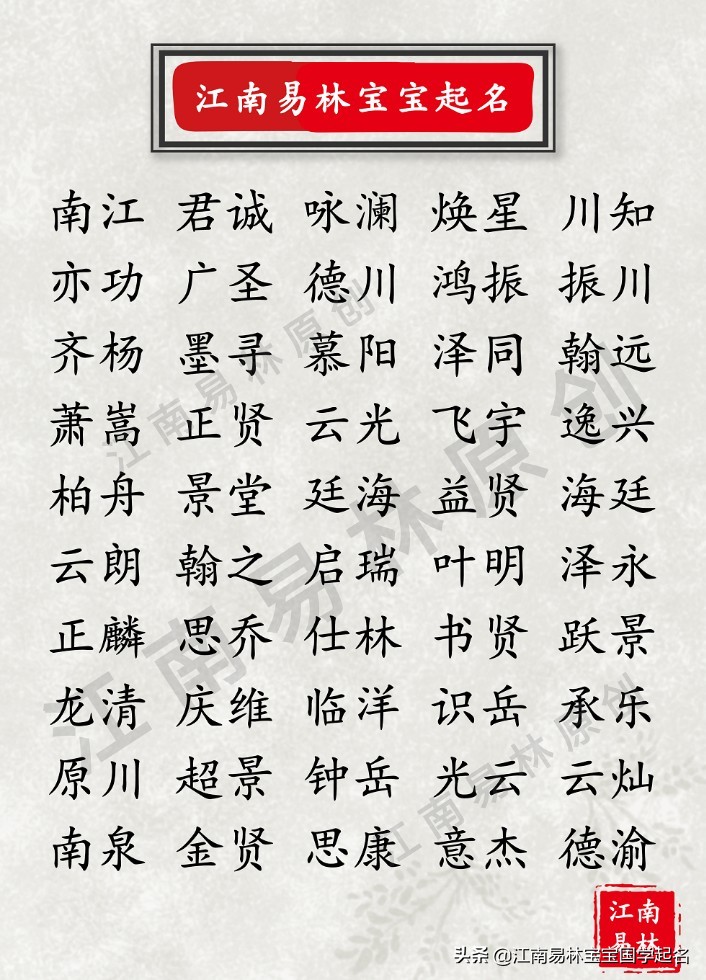 江南易林宝宝起名
南江 君诚 咏澜 焕星 川知
亦功 广圣 德川 鸿振 振川
齐杨 墨寻 慕阳 泽同 翰远
萧嵩 正贤 云光 飞宇 逸兴
柏舟 景堂 廷海 益贤 海廷
云朗 翰之 启瑞 叶明 泽永
正麟 思乔 仕林 书贤 跃景
龙清 庆维 临洋 识岳 承乐
原川 超景 钟岳 光云 云灿
南泉 金贤 思康 意杰 德渝
江南易林原创
江南易林原创
江南易林原创
江南
易林
头条 @江南易林宝宝国学起名